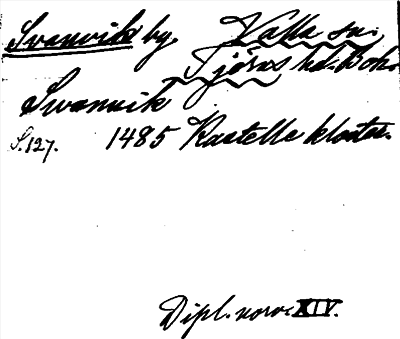 Svanvik by. Valla sn.
Tjörns hd. Boh.
Swanuik
S. 127. 1485 Kastelle kloster.
Dipl. norv. XIV.